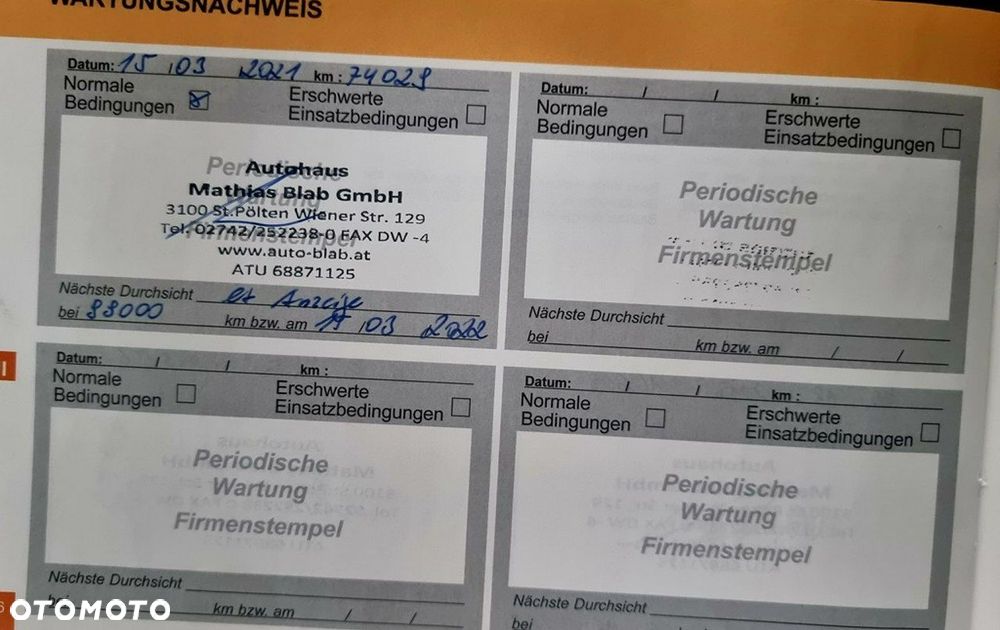 WARTUNGSNACHWEIS
Datum: 15 / 03 2021 km : 74029
Normale
Bedingungen
Erschwerte
Einsatzbedingungen
Periodische
Wartung
Firmenstempel
Autohaus
Mathias Blab GmbH
3100 St.Pölten Wiener Str. 129
Tel. 02742/252238-0 FAX DW -4
www.auto-blab.at
ATU 68871125
Nächste Durchsicht lt Anzeige
bei 99000 km bzw. am 17 /03 2022
Datum: / / km :
Normale
Bedingungen
Erschwerte
Einsatzbedingungen
Periodische
Wartung
Firmenstempel
Nächste Durchsicht
bei km bzw. am / /
Datum: / / km :
Normale
Bedingungen
Erschwerte
Einsatzbedingungen
Periodische
Wartung
Firmenstempel
Nächste Durchsicht
km bzw. am / /
Datum: / / km :
Normale
Bedingungen
Erschwerte
Einsatzbedingungen
Periodische
Wartung
Firmenstempel
Nächste Durchsicht
bei
6
OTOMOTO